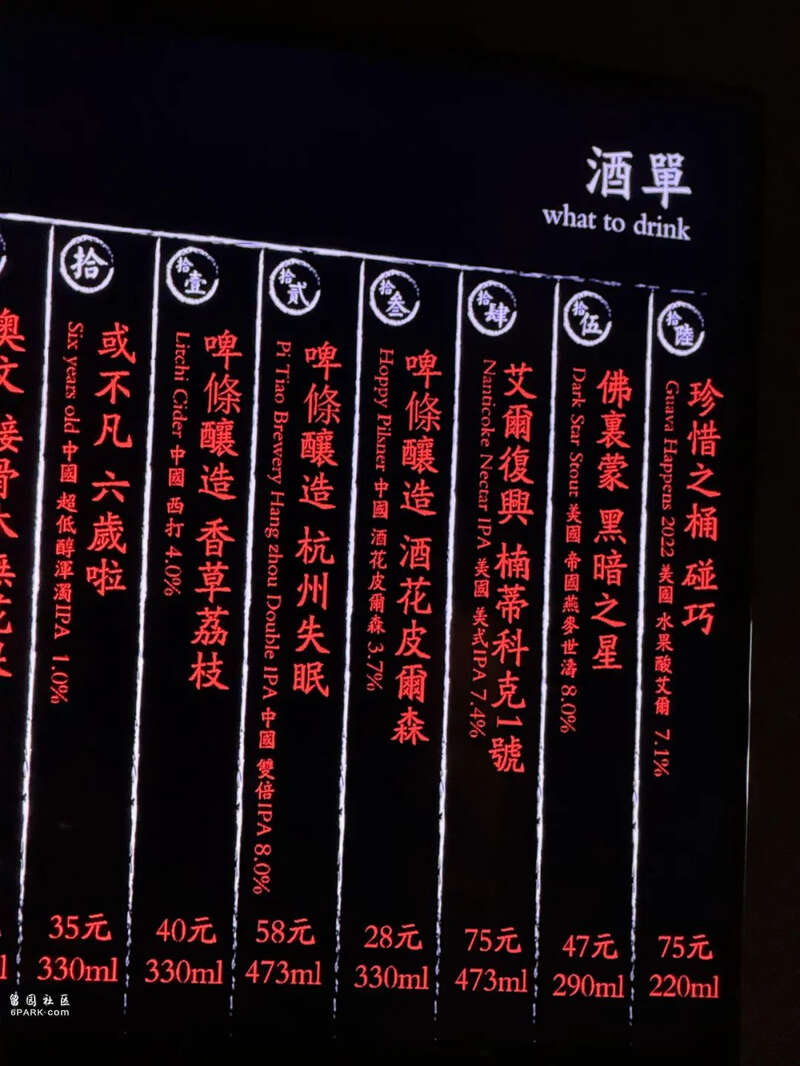 酒單
what to drink
拾陸
珍惜之桶 碰巧
Guava Happens 2022 美國 水果酸艾爾 7.1%
75元
220ml
拾伍
佛裏蒙 黑暗之星
Dark Sar Stout 美國 帝國燕麥世濤 8.0%
47元
290ml
拾肆
艾爾復興 楠蒂科克1號
Nanticoke Nectar IPA 美國 美式IPA 7.4%
75元
473ml
拾叁
啤條釀造 酒花皮爾森
Hoppy Pilsner 中國 酒花皮爾森 3.7%
28元
330ml
拾貳
啤條釀造 杭州失眠
Pi Tiao Brewery Hang zhou Double IPA 中國 雙倍IPA 8.0%
58元
473ml
拾壹
啤條釀造 香草荔枝
Litchi Cider 中國 西打 4.0%
40元
330ml
拾
或不凡 六歲啦
Six years old 中國 超低醇渾濁IPA 1.0%
35元
330ml
留园社区
6PARK.com